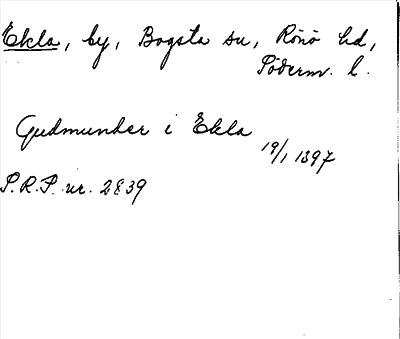 Ekla, by, Bogsta sn, Rönö hd,
Söderm. l.
Gudmunder i Ekla
19/1 1397
S.R.P. nr. 2839